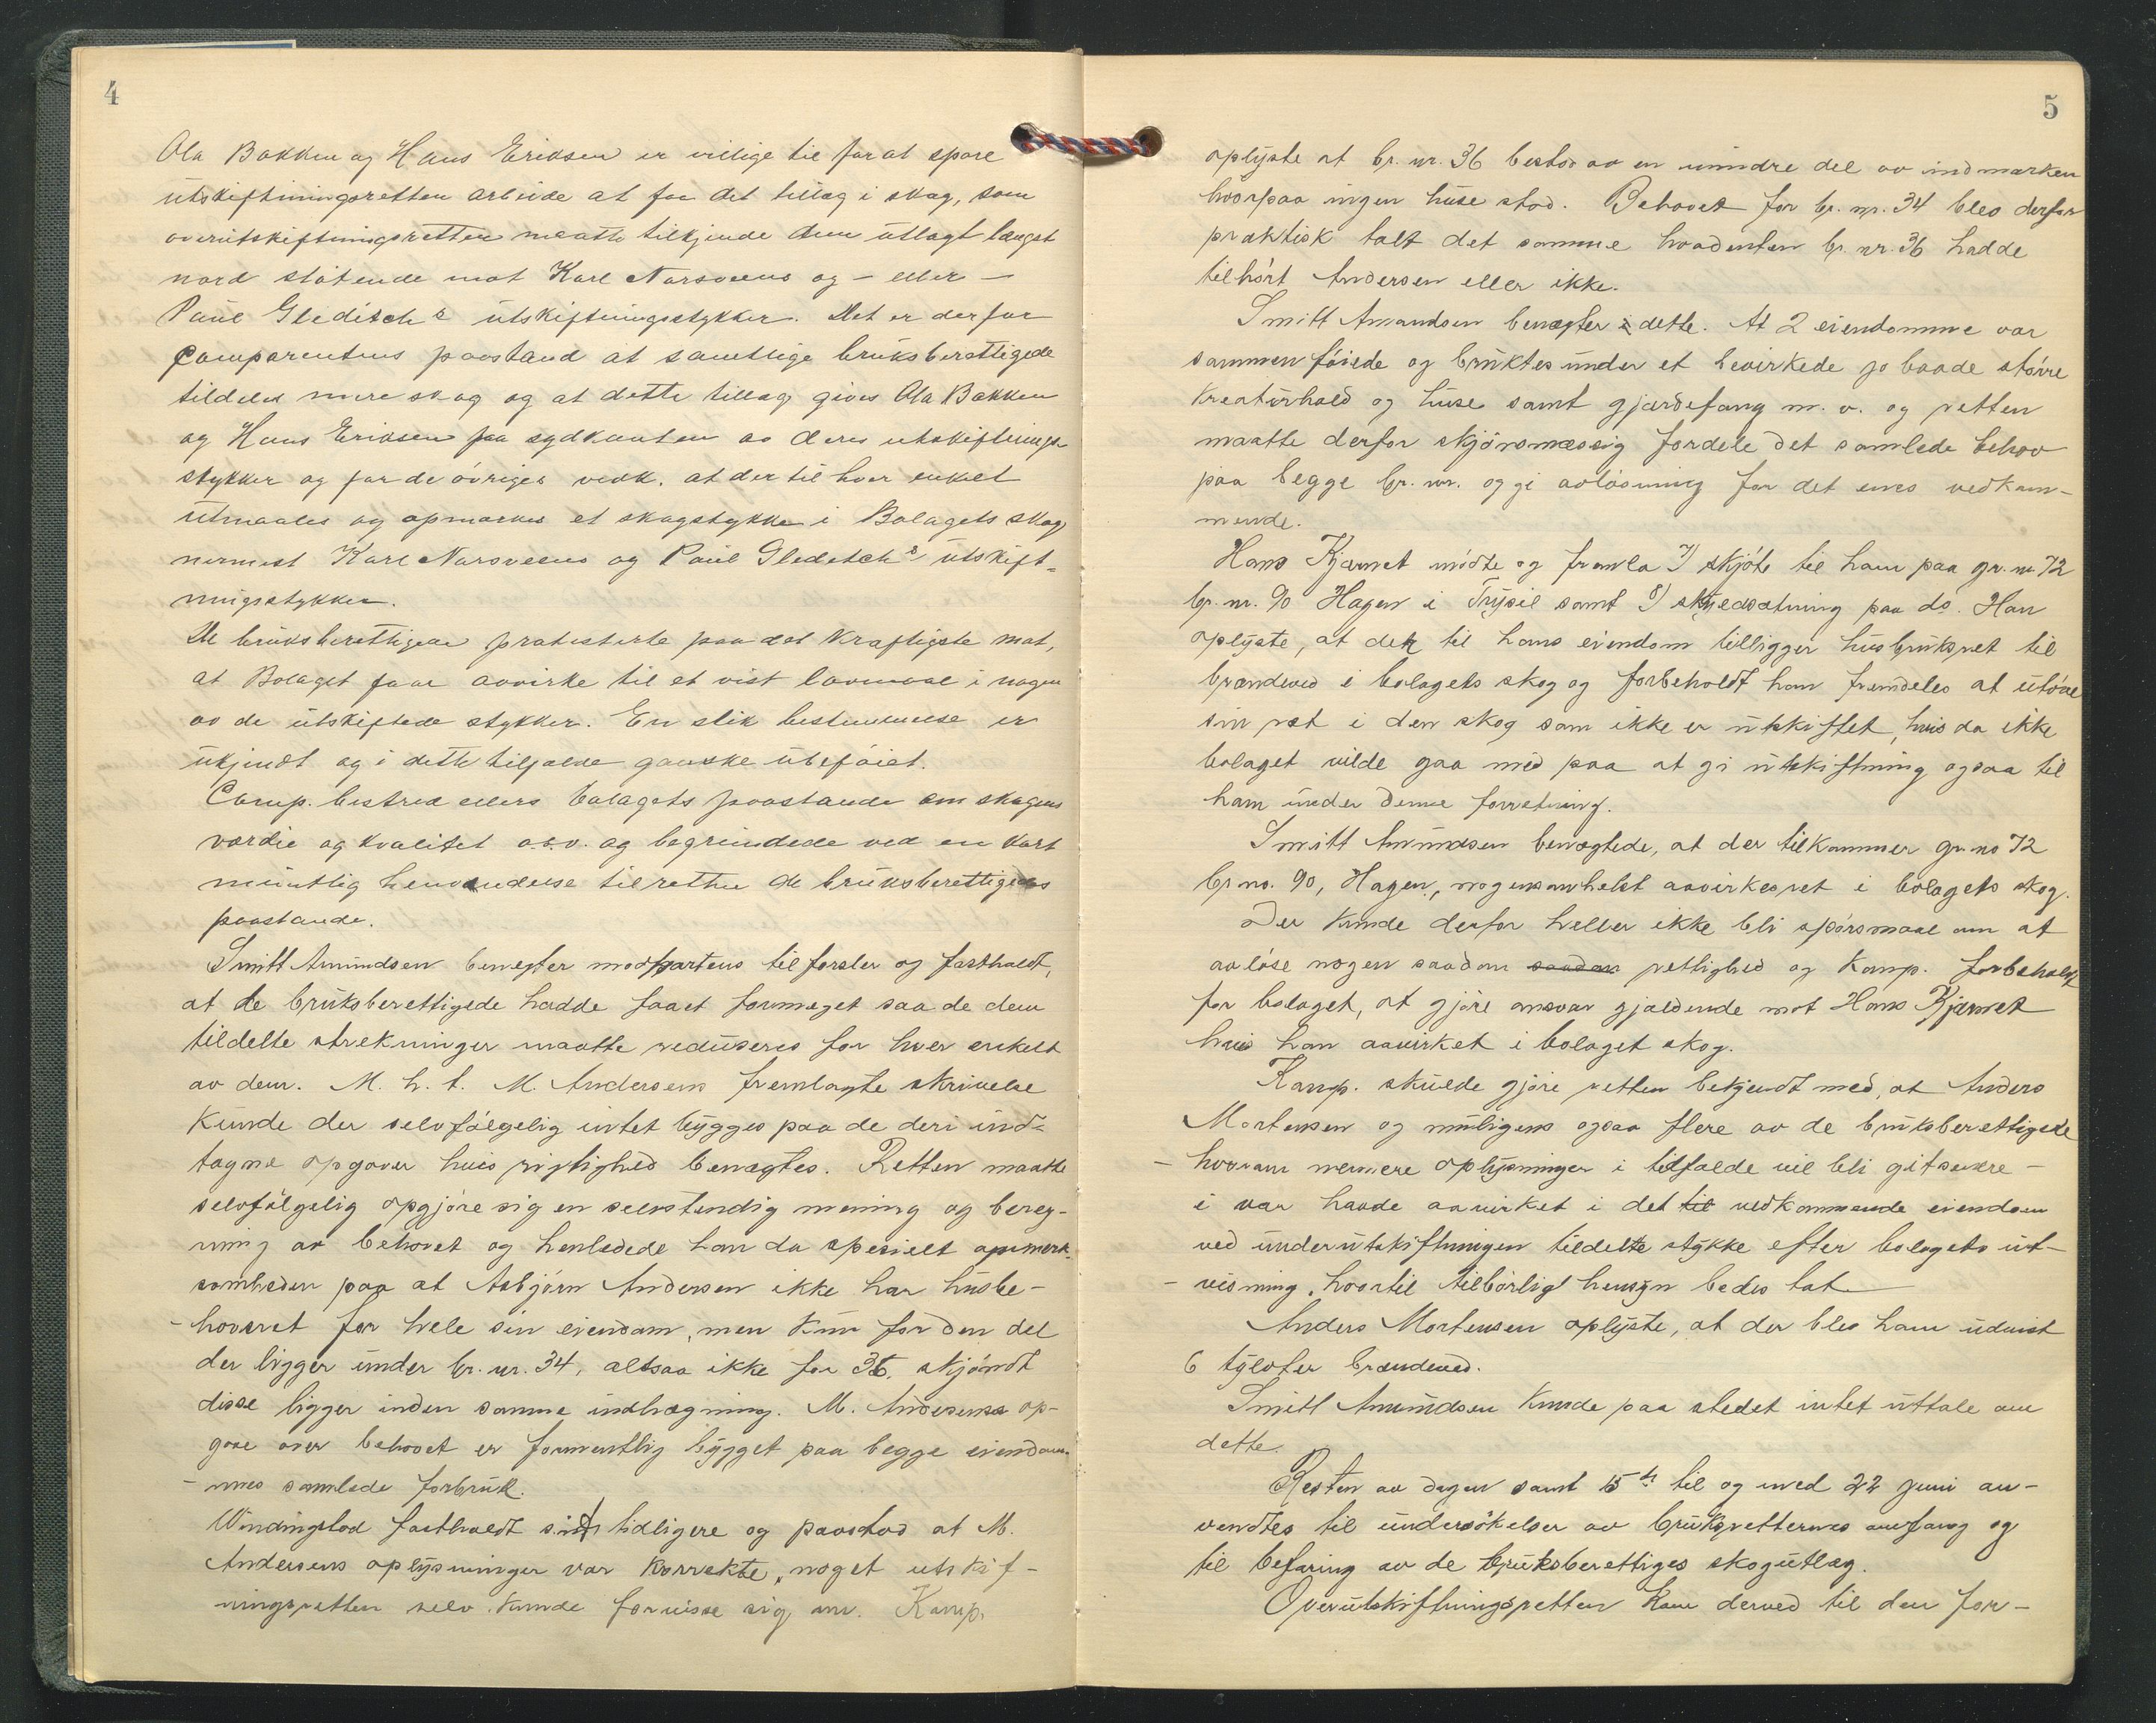 4
Ola Bakken og Hans Eriksen er villige til for at spare
utskiftningsretten arbeide at faa det tillæg i skog, som
overutskiftningsretten maatte tilkjende dem utlagt længst
nord støtende mot Karl Narsveens og – eller –
Paul Gleditsch's utskiftningsstykker. Det er derfor
comparentens paastand at samtlige bruksberettigede
tildeles mere skog og at dette tillæg gives Ola Bakken
og Hans Eriksen paa sydkanten av deres utskiftnings
stykker og for de øvriges vedk. at der til hver enkelt
utmaales og opmerkes et skogstykke i Bolagets skog
nermest Karl Narsveens og Paul Gleditsch's utskift-
ningsstykker.
De bruksberettigede protesterte paa det kraftigste mot,
at Bolaget faar avvirke til et vist lavmaal i nogen
av de utskiftede stykker. En slik bestemmelse er
ukjendt og i dette tilfælde ganske ubeføiet.
Comp. bestred ellers bolagets paastande om skogens
værdie og kvalitet o.s.v. og begrundede ved en kort
muntlig henvendelse til retten de bruksberettigedes
paastande.
Smitt Amundsen benegter modpartens tilførsler og fastholdt,
at de bruksberettigede hadde faaet formeget saa de dem
tildelte strekninger maatte reduseres for hver enkelt
av dem. M. h. t. M. Andersens fremlagte skrivelse
kunde der selvfølgelig intet bygges paa de deri ind-
tagne opgaver hvis rigtighed benægtes. Retten maatte
selvfølgelig opgjøre sig en selvstendig mening og bereg-
ning av behovet og henledede han da spesielt opmerk-
somheden paa at Asbjørn Andersen ikke har husbe-
- hovsret for hele sin eiendom, men kun for den del
der ligger under br. nr. 34, altsaa ikke for 36, skjøndt
disse ligger inden samme indhegning. M. Andersens op-
gave over behovet er formentlig bygget paa begge eiendom-
- mes samlede forbruk.
Windingstad fastholdt sit tidligere og paastod at M.
Andersens oplysninger var korrekte, noget utskif-
ningsretten selv kunde forvisse sig om. Komp.
5
oplyste at br. nr. 36 bestod av en mindre del av indmarken
hvorpaa ingen huse stod. Behovet for br. nr. 34 blev derfor
praktisk talt det samme hvadenten br. nr. 36 hadde
tilhørt Andersen eller ikke.
Smitt Amundsen benegter dette. At 2 eiendomme var
sammenføiede og bruktes under et bevirkede jo baade større
kreaturhold og huse samt gjærdefang m. v. og retten
maatte derfor skjønsmæssig fordele det samlede behov
paa begge br. nr. og gi avløsning for det enes vedkom-
mende.
Hans Kjærnet mødte og fremla 7) skjøte til ham paa gr. nr. 72
br. nr. 90 Hagen i Trysil samt 8) skyldsætning paa do. Han
oplyste, at der til hans eiendom tilligger husbruksret til
brændeved i bolagets skog og forbeholdt ham fremdeles at utøve
sin ret i den skog som ikke er utskiftet, hvis da ikke
bolaget vilde gaa med paa at gi utskiftning ogsaa til
ham under denne forretning.
Smitt Amundsen benægtede, at der tilkommer gr. no 72
br. no. 90, Hagen, nogensomhelst avvirkesret i bolagets skog.
Der kunde derfor heller ikke bli spørsmaal om at
avløse nogen saadan saadan rettighed og Komp. forbeholdt
for bolaget, at gjøre ansvar gjældende mot Hans Kjærnet
hvis han avvirket i bolaget skog.
Komp. skulde gjøre retten bekjendt med, at Anders
Mortensen og muligens ogsaa flere av de bruksberettigede
- hvorom nermere oplysninger i tilfælde vil bli git senere -
i vaar havde avvirket i det til vedkommende eiendom
ved underutskiftningen tildelte stykke efter bolagets ut-
- visning, hvortil tilbørlig hensyn bedes tat
Anders Mortensen oplyste, at der blev ham udvist
6 tylvter brændeved.
Smitt Amundsen kunde paa stedet intet uttale om
dette.
Resten av dagen samt 15de til og med 22 juni an-
vendtes til undersøkelser av bruksretternes omfang og
til befaring av de bruksberettiges skogutlæg.
Overutskiftningsretten kom derved til den for-